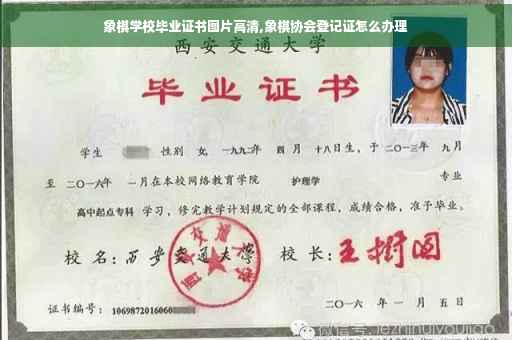 象棋学校毕业证书图片高清,象棋协会登记证怎么办理
西安交通大学
毕业证书
学生 性别 女, 一九九二年 四月 十八日生, 于 二〇一三年 九月
至 二〇一六年 一月在本校网络教育学院 护理学 专业
高中起点专科 学习, 修完教学计划规定的全部课程, 成绩合格, 准予毕业。
校 名: 西安交通大学 校 长: 王树国
西安交通大学
证书编号: 1069872016060
二〇一六 年 一 月 五 日
微信号: jezhihuiyoujiao